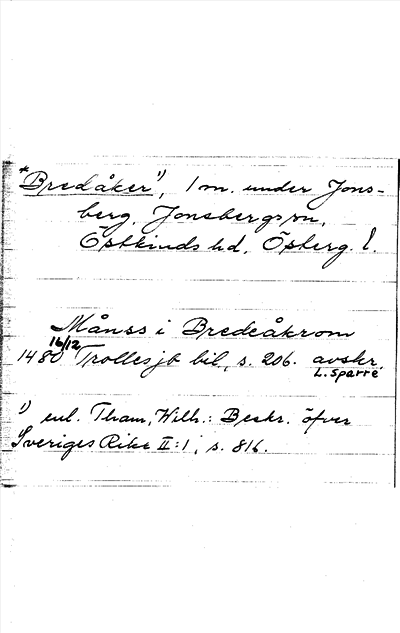 *Bredåker¹), 1 m. under Jons-
berg, Jonsbergs sn,
Östkinds hd, Österg. l.
Månss i Bredeåkrom
1480 16/12 Trolles jb bil, s. 206. avskr.
L. Sparre
¹) enl. Tham, Wilh.: Beskr. öfver
Sveriges Rike II:1, s. 816.